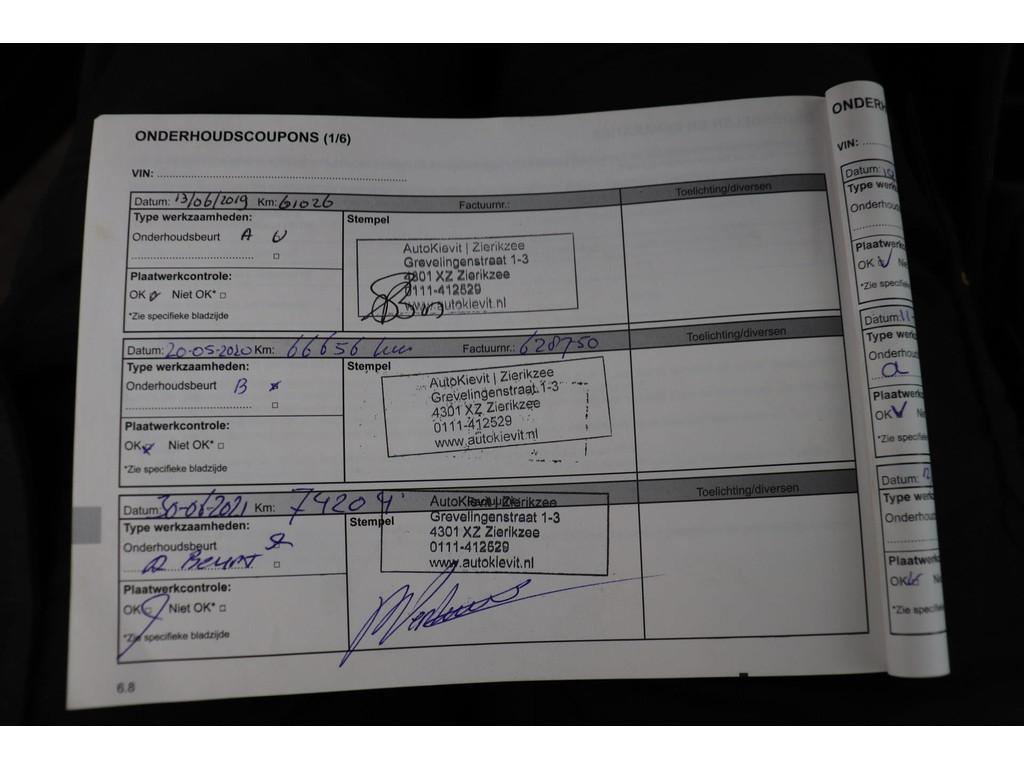 ONDERHOUDSCOUPONS (1/6)
VIN:
Datum: 13/06/2019 Km: 61026 Factuurnr.: Toelichting/diversen
Type werkzaamheden: Stempel
Onderhoudsbeurt A
AutoKievit | Zierikzee
Grevelingenstraat 1-3
4301 XZ Zierikzee
0111-412529
www.autokievit.nl
Plaatwerkcontrole:
OK Niet OK*
*Zie specifieke bladzijde
Datum: 20-05-2020 Km: 66656 km Factuurnr.: 628750 Toelichting/diversen
Type werkzaamheden: Stempel
Onderhoudsbeurt B
AutoKievit | Zierikzee
Grevelingenstraat 1-3
4301 XZ Zierikzee
0111-412529
www.autokievit.nl
Plaatwerkcontrole:
OK Niet OK*
*Zie specifieke bladzijde
Datum: 30-06-2021 Km: 74204 Toelichting/diversen
Type werkzaamheden: Stempel
Onderhoudsbeurt
Beurt
AutoKievit | Zierikzee
Grevelingenstraat 1-3
4301 XZ Zierikzee
0111-412529
www.autokievit.nl
Plaatwerkcontrole:
OK Niet OK*
*Zie specifieke bladzijde
6.8
VIN:
Datum:
Plaatwerk
OK
Datum: 11-
a
Plaatwerk
OK
Datum: 12
OK
*Zie